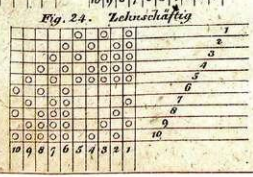 Fig. 24. Zehnschäftig
1
2
3
4
5
6
7
8
9
10
10 9 8 7 6 5 4 3 2 1